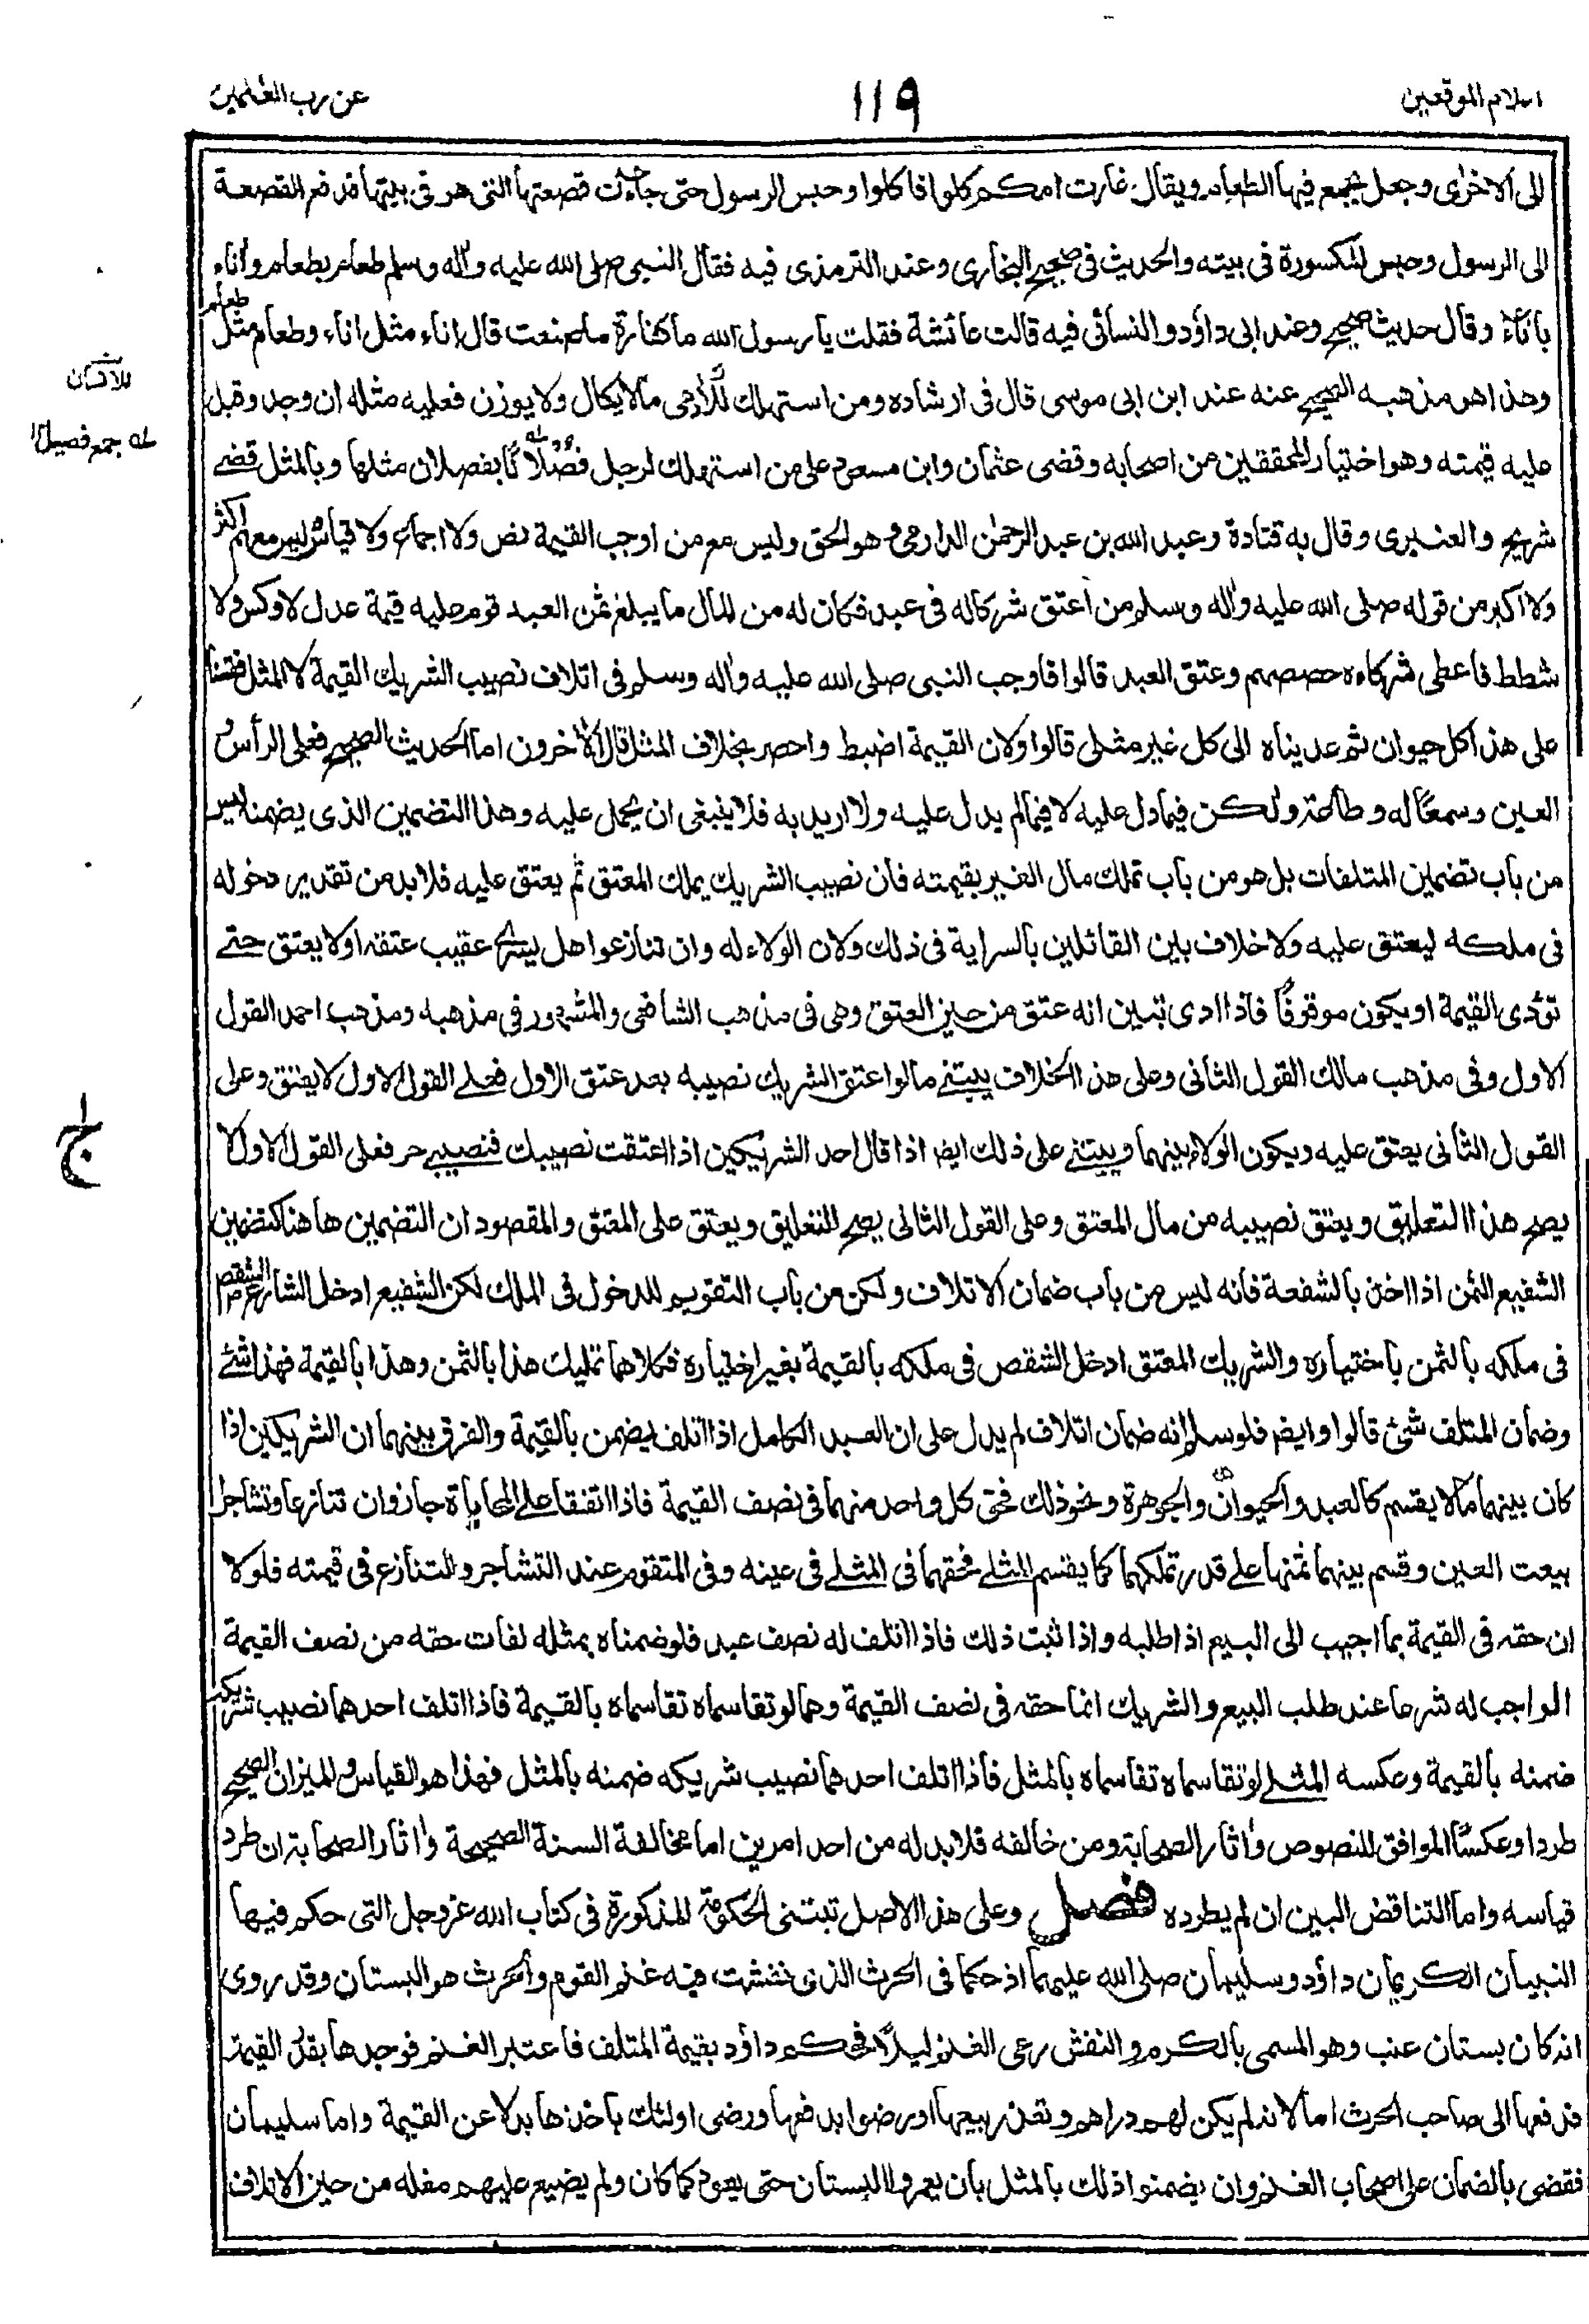 اعلام الموقعين
١١٩
عن رب العٰلمين
الى الاخرٰى وجعل يجمع فيها الطعام ويقال غارت امكم كلوا فاكلوا وحبس الرسول حتى جاءت قصعتها التى هو فى بيتها فدفع القصعة
الى الرسول وحبس المكسورة فى بيته والحديث فى صحيح البخارى وعند الترمذى فيه فقال النبى صلى الله عليه واٰله وسلم طعام بطعام واناء
باناء وقال حديث صحيح وعند ابى داؤد والنسائى فيه قالت عائشة فقلت يا رسول الله ما كفارة ما صنعت قال اناء مثل اناء وطعام مثل طعام
وهذا هو مذهبه الصحيح عنه عند ابن ابى موسى قال فى ارشاده ومن استهلك لآدمى مالا يكال ولا يوزن فعليه مثله ان وجد وقيل
للانسان
عليه قيمته وهو اختيار المحققين من اصحابه وقضى عثمان وابن مسعود على من استهلك لرجل فصلانا بفصلان مثلها وبالمثل قضے
له جمع فصيل ١٢
شريح والعنبرى وقال به قتادة وعبد الله بن عبد الرحمٰن الدارمى وهو الحق وليس مع من اوجب القيمة نص ولا اجماع ولا قياس وليس معهم اكثر
ولا اكبر من قوله صلى الله عليه واٰله وسلم من اعتق شركا له فى عبد فكان له من المال ما يبلغ ثمن العبد قوم عليه قيمة عدل لا وكس ولا
شطط فاعطى شركاءه حصصهم وعتق العبد قالوا فاوجب النبى صلى الله عليه واٰله وسلم فى اتلاف نصيب الشريك القيمة لا المثل فقسنا
على هذا كل حيوان ثم عديناه الى كل غير مثلى قالوا ولان القيمة اضبط واحصر بخلاف المثل قال الاٰخرون اما الحديث الصحيح فعلى الرأس و
العين وسمعًا له وطاعة ولٰكن فيما دل عليه لا فيما لم يدل عليه ولا اريد به فلا ينبغى ان يحمل عليه وهذا التضمين الذى يضمنه ليس
من باب تضمين المتلفات بل هو من باب تملك مال الغير بقيمته فان نصيب الشريك يملك المعتق ثم يعتق عليه فلا بد من تقدير دخوله
فى ملكه ليعتق عليه ولا خلاف بين القائلين بالسراية فى ذلك ولان الولاء له وان تنازعوا هل يسرى عقيب عتقه او لا يعتق حتے
تؤدى القيمة او يكون موقوفًا فاذا ادى تبين انه عتق من حين العتق وهى فى مذهب الشافعى والمشهور فى مذهبه ومذهب احمد القول
الاول وفى مذهب مالك القول الثانى وعلى هذا الخلاف يبتنے ما لو اعتق الشريك نصيبه بعد عتق الاول فعلے القول الاول لا يعتق وعلى
القول الثانى يعتق عليه ويكون الولاء بينهما ويبتنے على ذلك ايضا اذا قال احد الشريكين اذا اعتقت نصيبك فنصيبے حر فعلى القول الاول لا
يصح هذا التعليق ويعتق نصيبه من مال المعتق وعلى القول الثانى يصح التعليق ويعتق على المعتق والمقصود ان التضمين هاهنا كتضمين
الشفيع الثمن اذا اخذ بالشفعة فانه ليس من باب ضمان الاتلاف ولكن من باب التقويم للدخول فى الملك لكن الشفيع ادخل الشارع الشقص
فى ملكه بالثمن باختياره والشريك المعتق ادخل الشقص فى ملكه بالقيمة بغير اختياره فكلاهما تمليك هذا بالثمن وهذا بالقيمة فهذا شئے
وضمان المتلف شئ قالوا وايضا فلو سلم انه ضمان اتلاف لم يدل على ان العبد الكامل اذا اتلف يضمن بالقيمة والفرق بينهما ان الشريكين اذا
كان بينهما مالا يقسم كالعبد والحيوان والجوهرة ونحو ذلك فحق كل واحد منهما فى نصف القيمة فاذا اتفقا على المهاياة جاز وان تنازعا وتشاجرا
بيعت العين وقسم بينهما ثمنها على قدر تملكهما كما يقسم المثلے فحقهما فى المثلے فى عينه وفى المتقوم عند التشاجر والتنازع فى قيمته فلولا
ان حقه فى القيمة بما اجيب الى البيع اذا طلبه واذا ثبت ذلك فاذا اتلف له نصف عبد فلو ضمناه بمثله لفات حقه من نصف القيمة
الواجب له شرعا عند طلب البيع والشريك انما حقه فى نصف القيمة وهما لو تقاسماه تقاسماه بالقيمة فاذا اتلف احدهما نصيب شريكه
ضمنه بالقيمة وعكسه المثلے لو تقاسماه تقاسماه بالمثل فاذا اتلف احدهما نصيب شريكه ضمنه بالمثل فهذا هو القياس والميزان الصحيح
طردا وعكسًا الموافق للنصوص واٰثار الصحابة ومن خالفه فلا بد له من احد امرين اما مخالفة السنة الصحيحة واٰثار الصحابة ان طرد
قياسه واما التناقض البين ان لم يطرده فصل وعلى هذا الاصل تبتنى الحكومة المذكورة فى كتاب الله عز وجل التى حكم فيها
النبيان الكريمان داؤد وسليمان صلى الله عليهما اذ حكما فى الحرث الذى نفشت فيه غنم القوم والحرث هو البستان وقد روى
انه كان بستان عنب وهو المسمى بالكرم والنفش رعى الغنم ليلًا فحكم داؤد بقيمة المتلف فاعتبر الغنم فوجدها بقدر القيمة
فدفعها الى صاحب الحرث اما لانه لم يكن لهم دراهم وتعذر بيعها او رضوا بدفعها ورضى اولئك باخذها بدلا عن القيمة واما سليمان
فقضى بالضمان على اصحاب الغنم وان يضمنوا ذلك بالمثل بان يعمروا البستان حتى يعود كما كان ولم يضيع عليهم مغله من حين الاتلاف